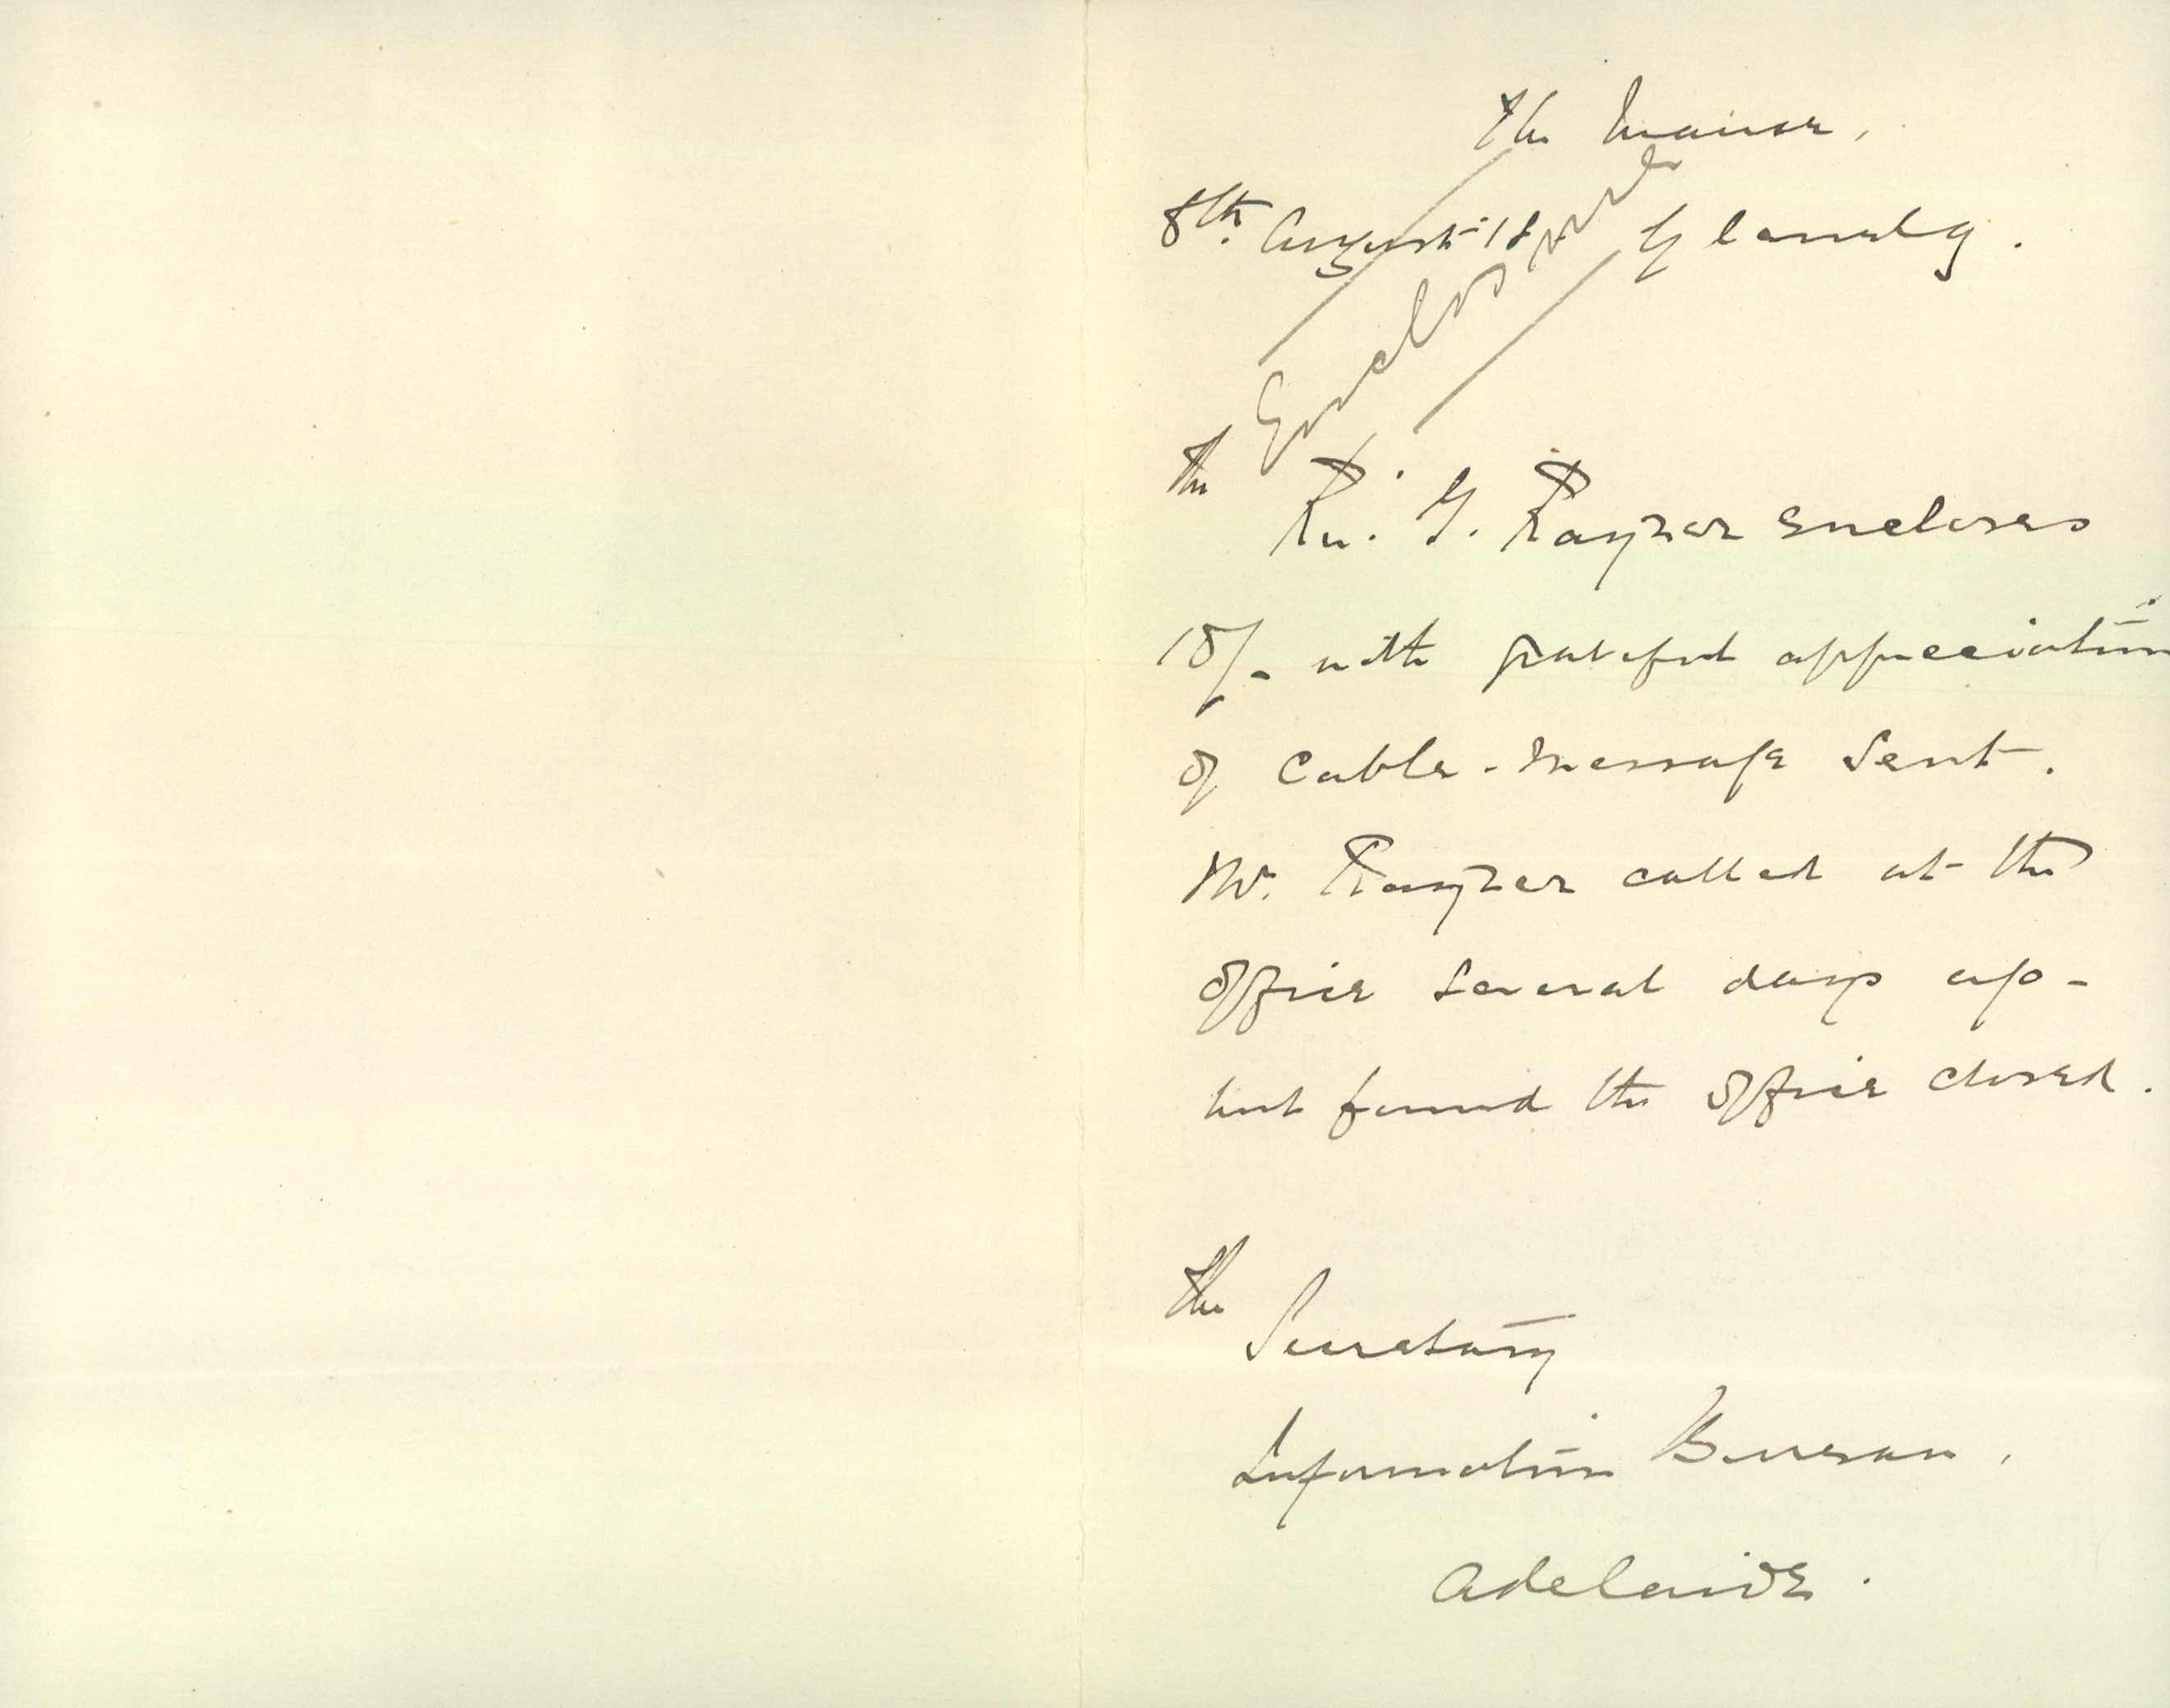 The Manse,
8th. August 18 Glenelg.
Enclosure
The
Rev. G. Rayner encloses
18/- with grateful appreciation
of cable-message sent.
Mr. Rayner called at the
office several days ago -
but found the office closed.
The
Secretary
Information Bureau,
Adelaide.